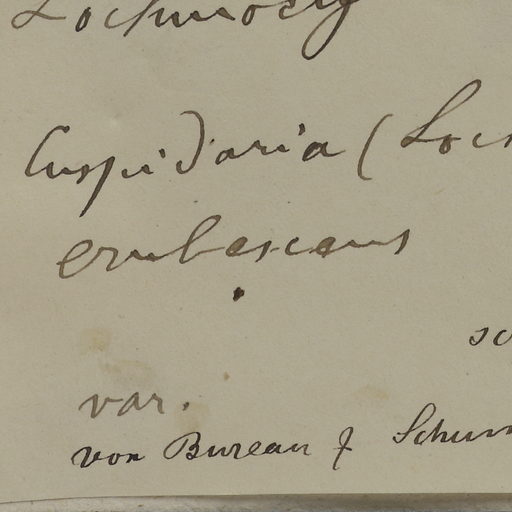 Cuspidaria (Loc
erubescens
sc
var.
von Bureau f Schum